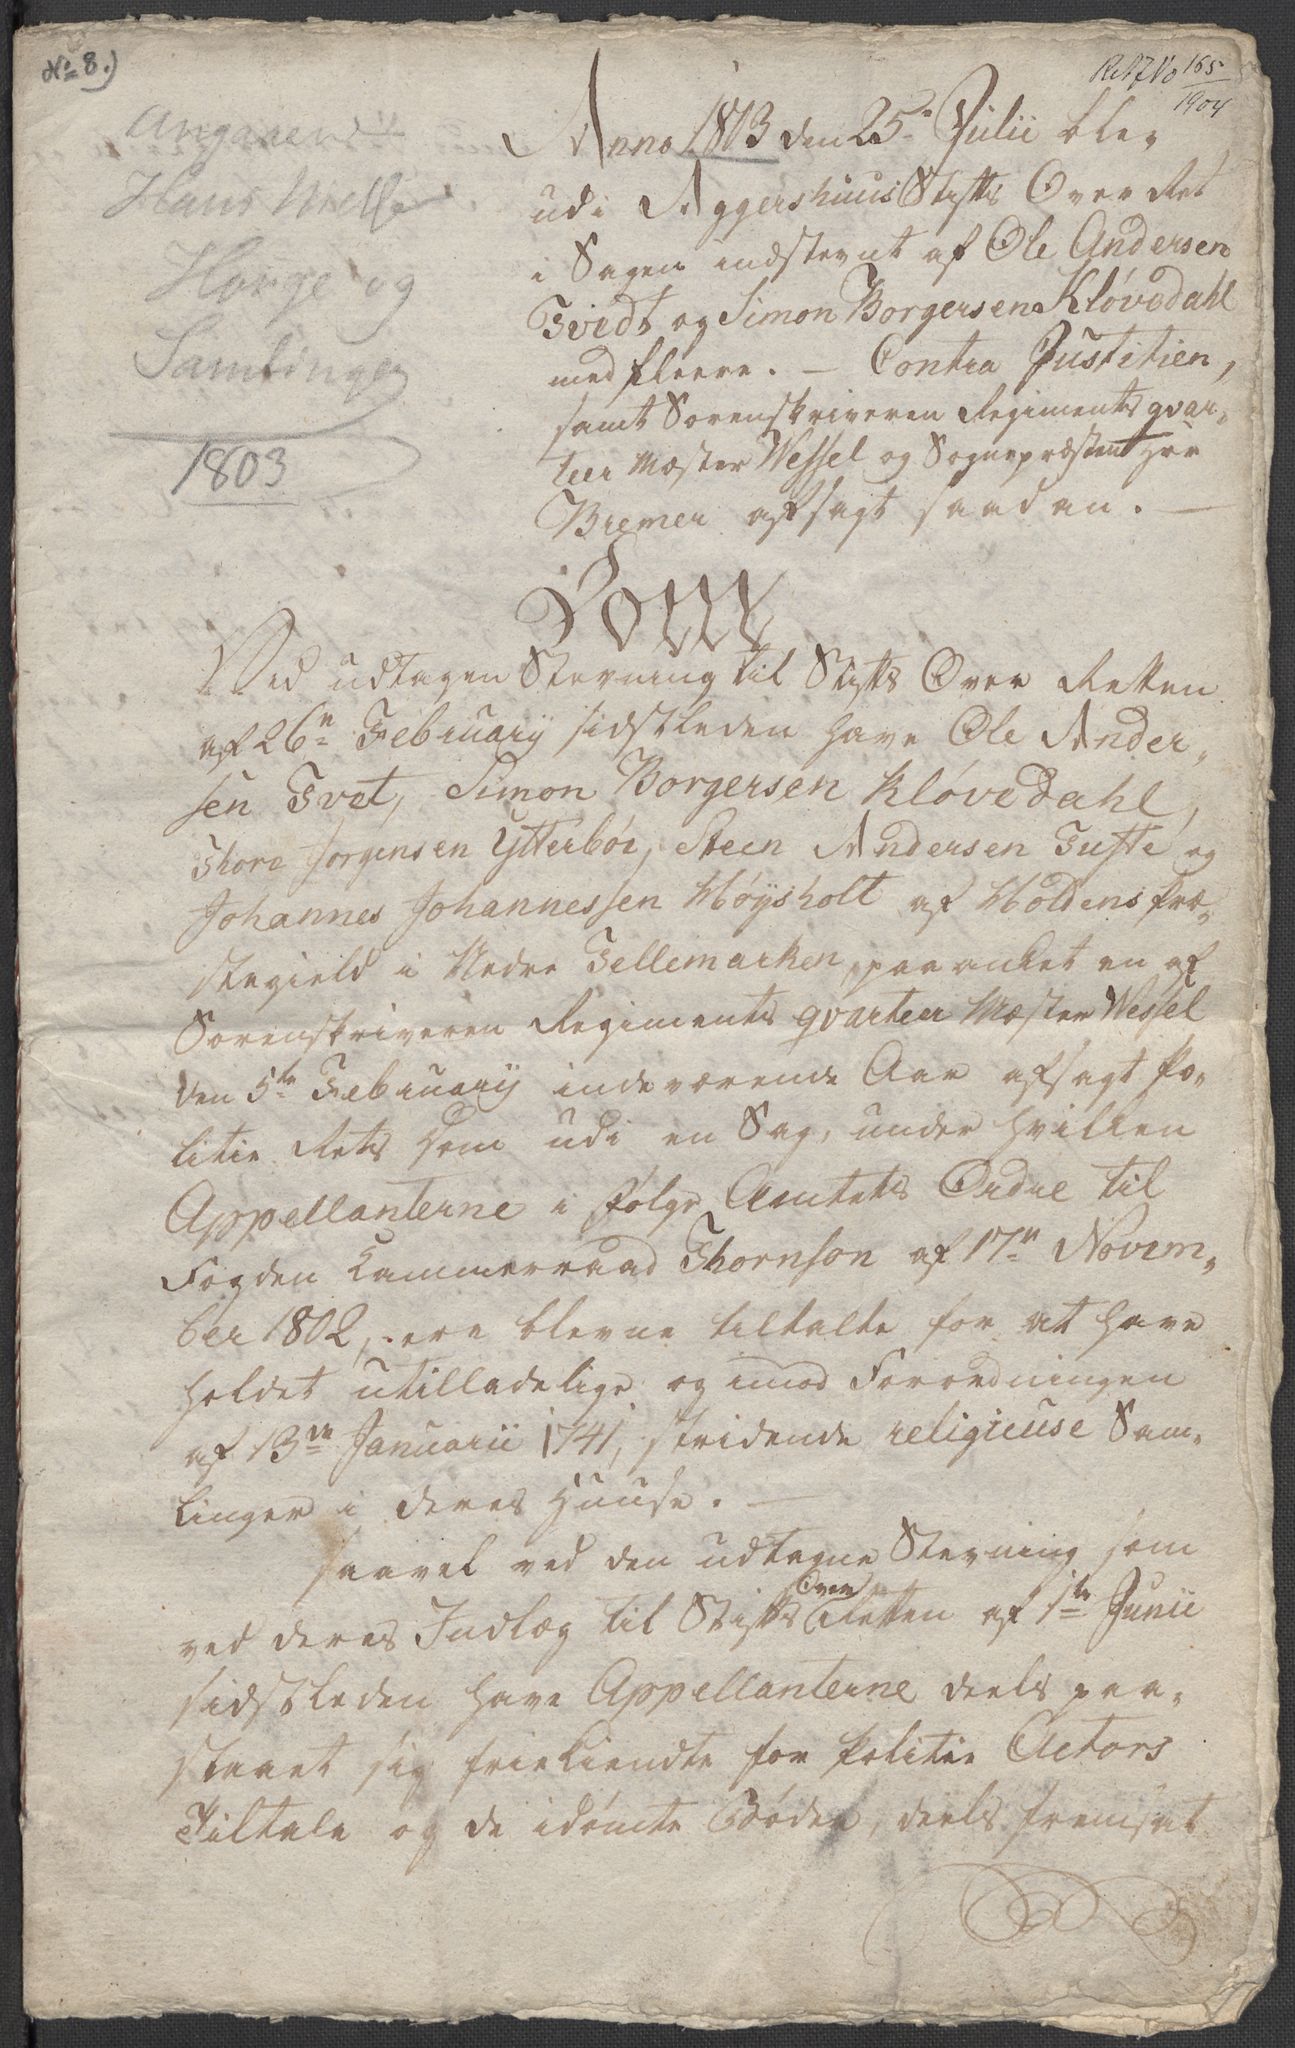 No 8.)
165
1904
Angaaende
Hans Niels
Hauge og
Samlinger
1803
Anno 1803 den 25de Julii blev
udi Aggershuus Stifts Over Ret
i Sagen indstevnt af Ole Andersen
Tvedt og Simon Borgersen Kløvedahl
med fleere. — Contra Justitien,
samt Sorenskriveren Regiments qvar-
teer Mæster Wessel og Sognepræsten Hr
Bremer afsagt saadan. —
Dom
Ved udtagen Stevning til Stifts Over Retten
af 26n Februarij sidstleden have Ole Ander-
sen Tvet, Simon Borgersen Kløvedahl,
Thore Jorgensen Ytterbøe, Steen Andersen Tufte og
Johannes Johannessen Høysholt af Holdens Præ-
stegield i Nedre Tellemarken, paaanket en af
Sorenskriveren Regiments qvarteer Mæster Wessel
den 5te Februarij indeværende Aar afsagt Po-
litie Rets Dom udi en Sag, under hvilken
Appellanterne i følge Amtets Ordre til
Fogden Kammerraad Thornson af 17n Novem-
ber 1802, ere blevne tiltalte for at have
holdet utilladelige og imod Forordningen
af 13de Januarii 1741, stridende religieuse Sam-
linger i deres Huuse. —
Saavel ved den udtagne Stevning som
ved deres Indlæg til Stifts Over Retten af 1te Junii
sidstleden have Appellanterne deels paa-
staaet sig friekiendte for Politie Actors
Tiltale og de idømte Bøder, deels fremsat